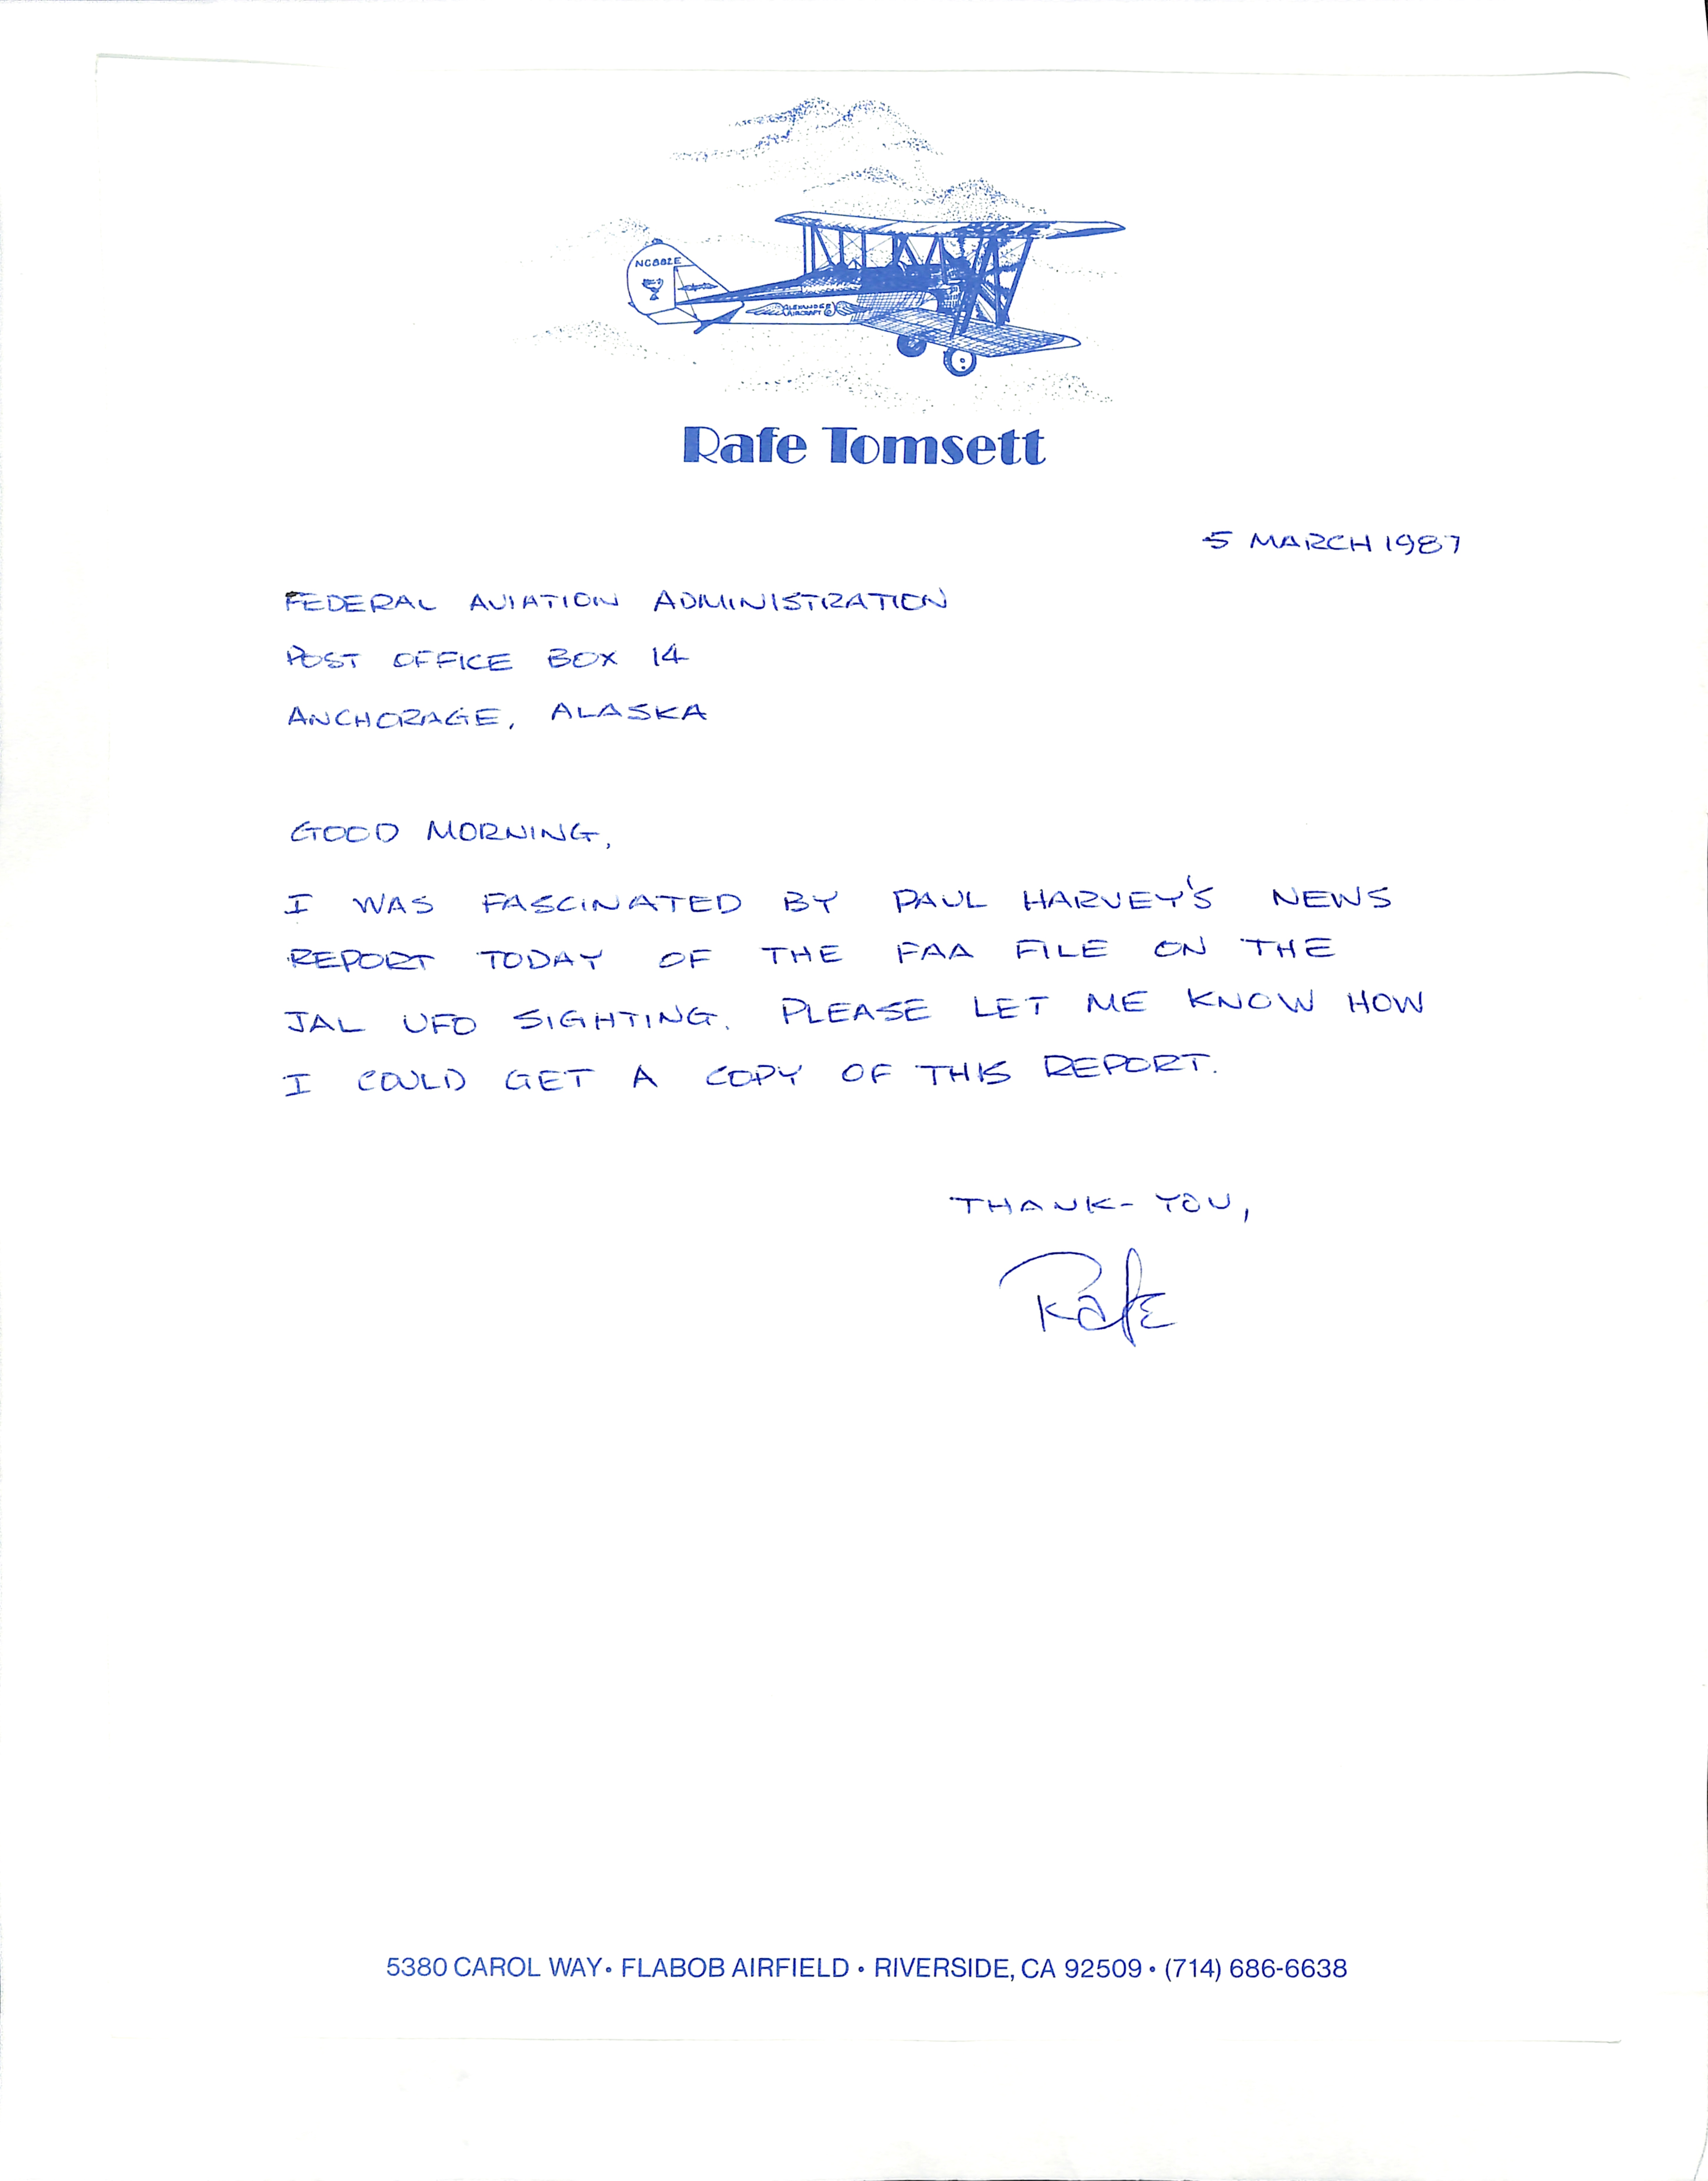 NC882E
ALEXANDER
AIRCRAFT
Rafe Tomsett
5 MARCH 1987
FEDERAL AVIATION ADMINISTRATION
POST OFFICE BOX 14
ANCHORAGE, ALASKA
GOOD MORNING,
I WAS FASCINATED BY PAUL HARVEY'S NEWS
REPORT TODAY OF THE FAA FILE ON THE
JAL UFO SIGHTING. PLEASE LET ME KNOW HOW
I COULD GET A COPY OF THIS REPORT.
THANK-YOU,
Rafe
5380 CAROL WAY • FLABOB AIRFIELD • RIVERSIDE, CA 92509 • (714) 686-6638